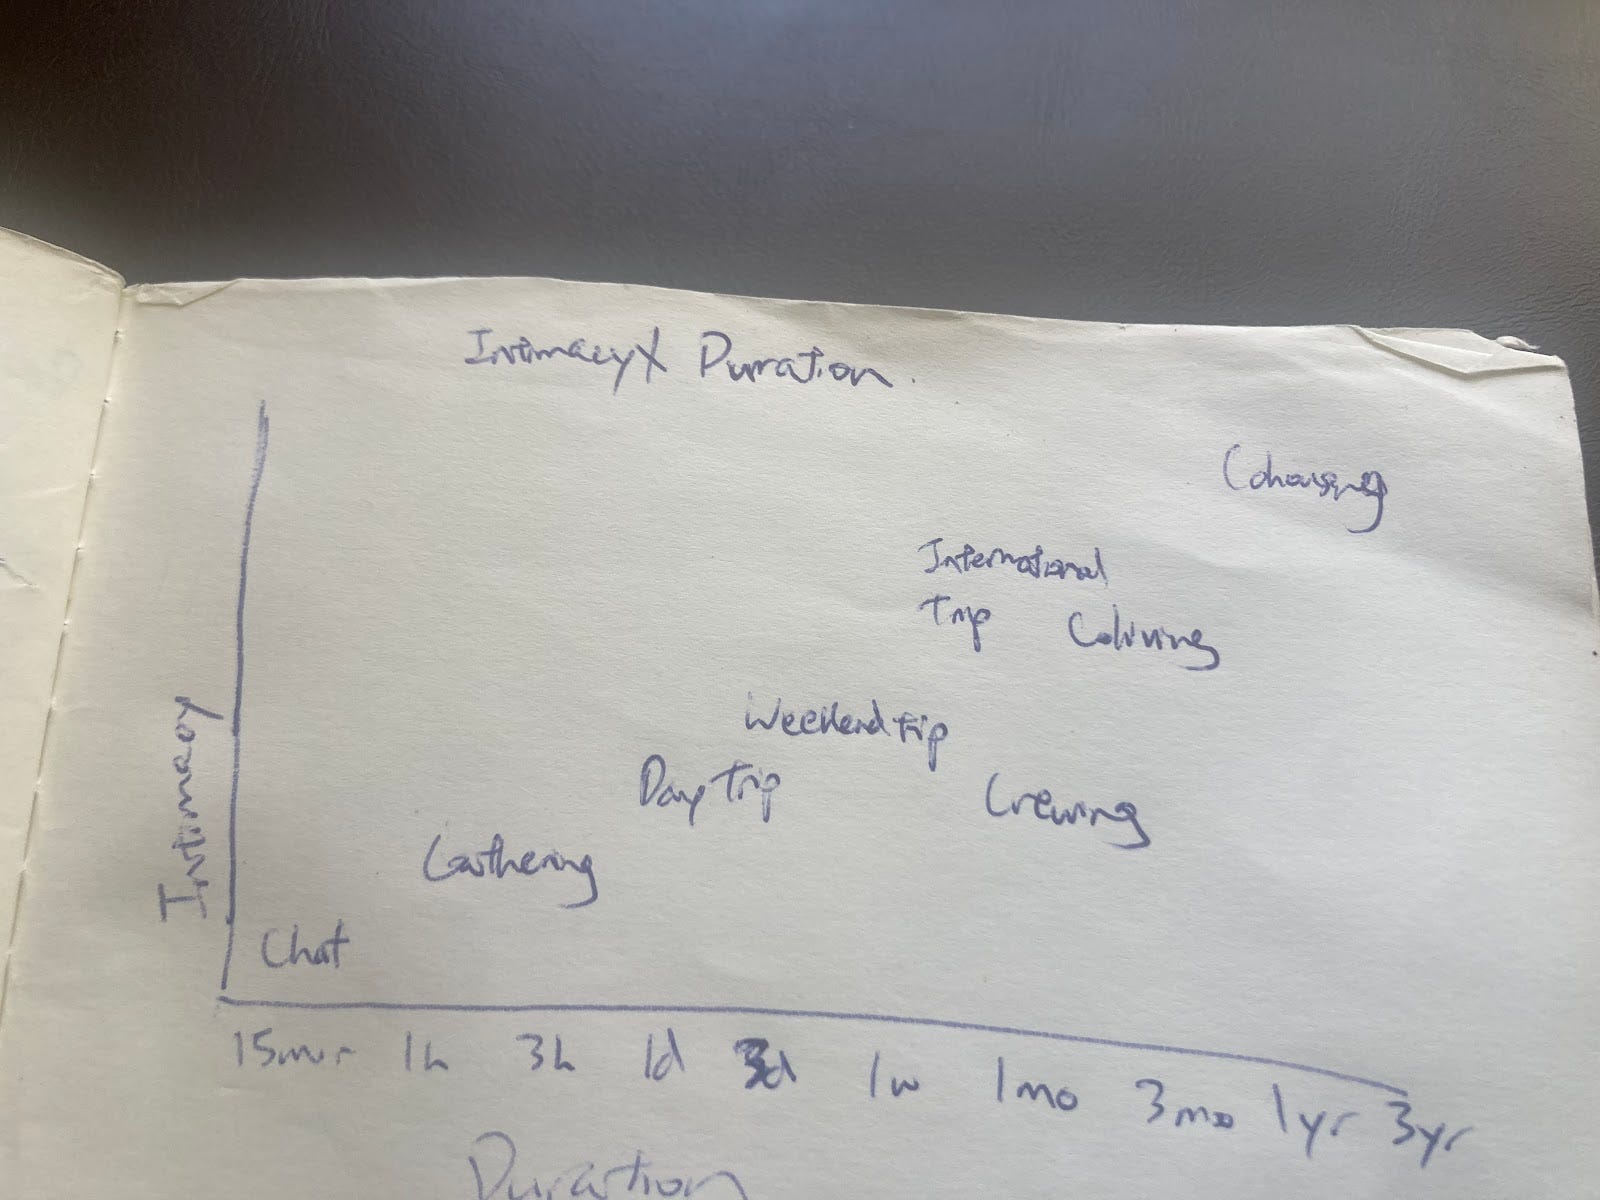 Intimacy X Duration.
Cohousing
International
Trip
Coliving
Weekend trip
Day Trip
Crewing
Gathering
Chat
Intimacy
15min 1h 3h 1d 3d 1w 1mo 3mo 1yr 3yr
Duration